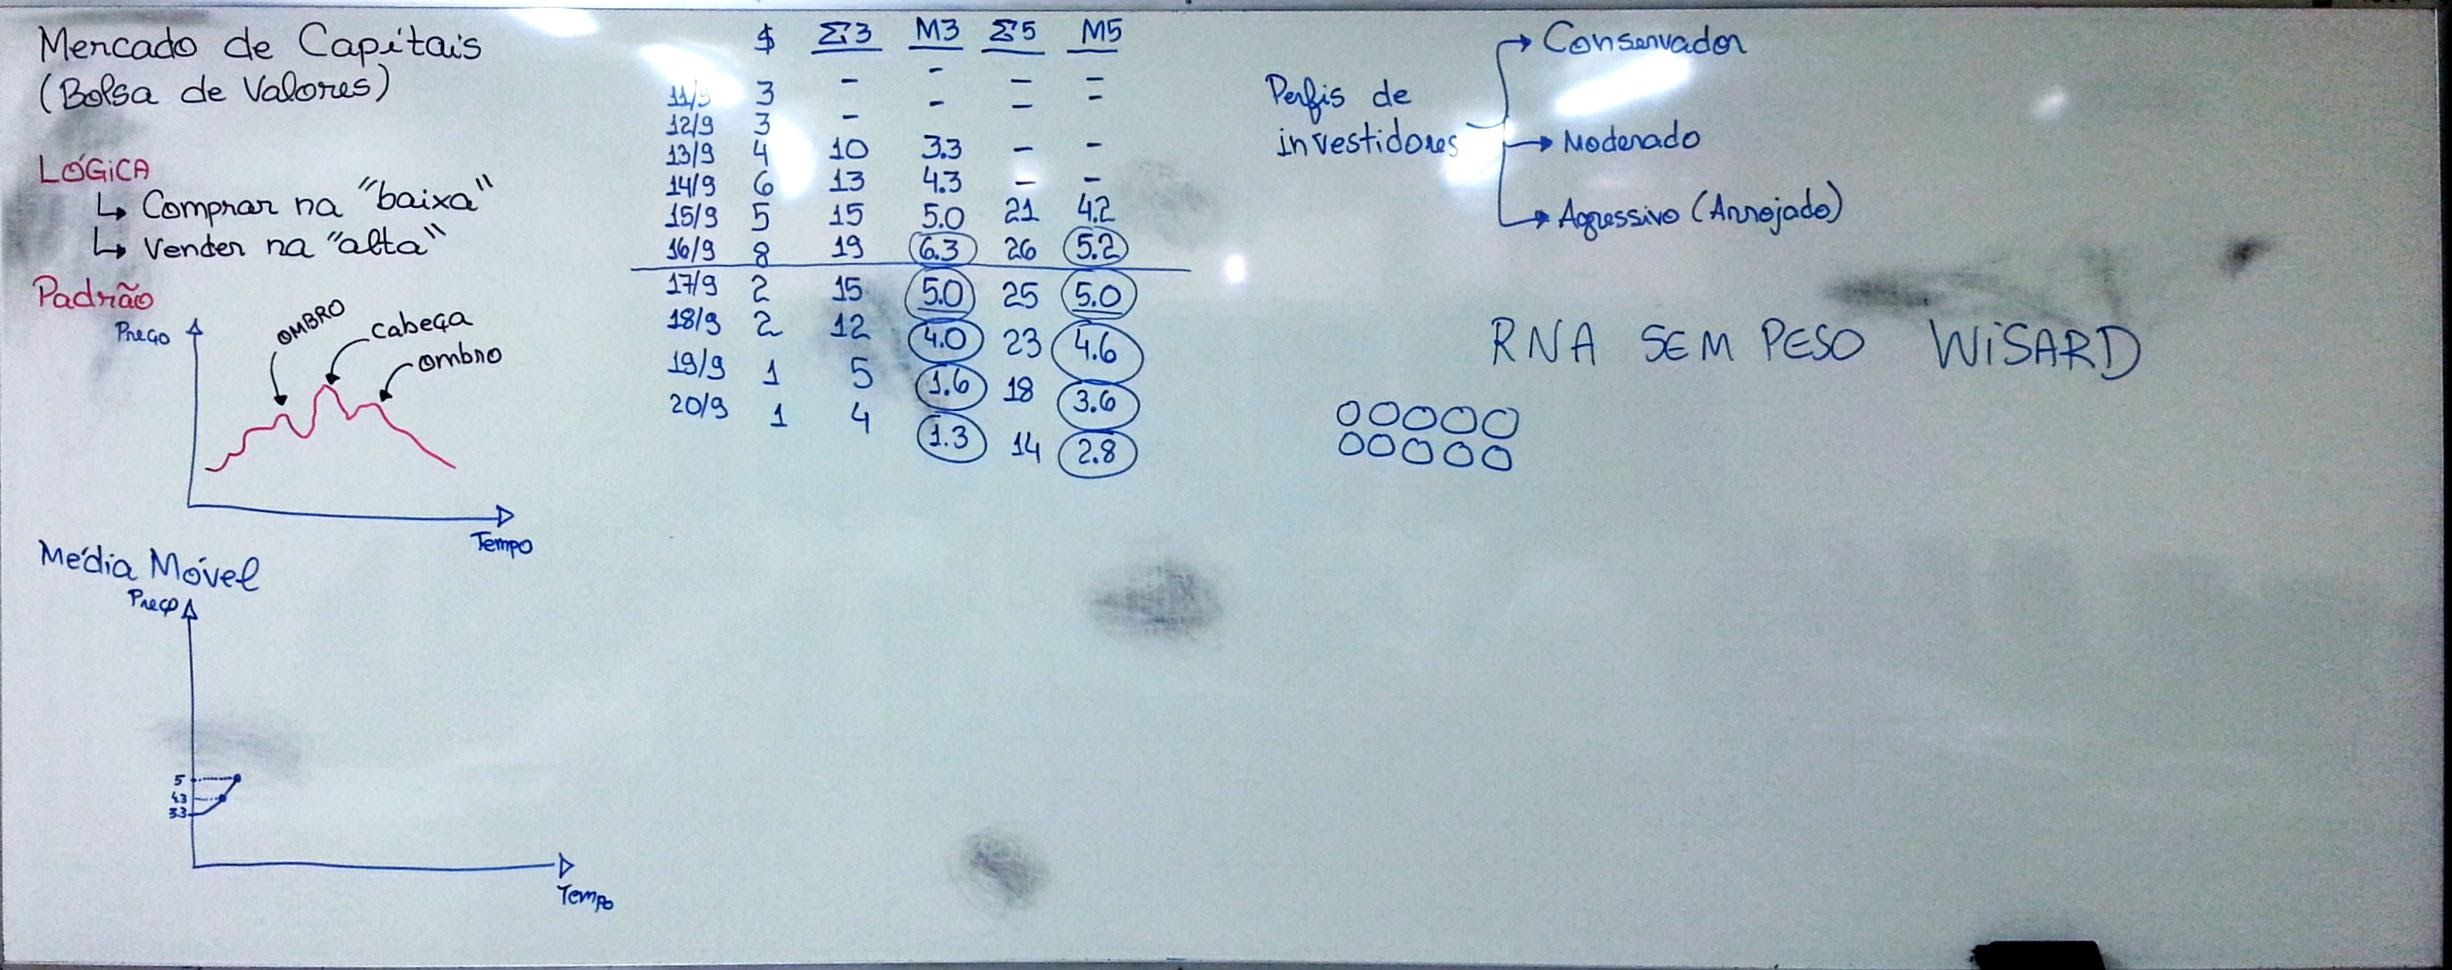 Mercado de Capitais
(Bolsa de Valores)
LÓGICA
↳ Comprar na "baixa"
↳ Vender na "alta"
Padrão
Preço
OMBRO
Cabeça
ombro
Tempo
Média Móvel
Preço
5
4.3
3.3
Tempo
$ Σ3 M3 Σ5 M5
11/9 3 - - - -
12/9 3 - - - -
13/9 4 10 3.3 - -
14/9 6 13 4.3 - -
15/9 5 15 5.0 21 4.2
16/9 8 19 6.3 26 5.2
17/9 2 15 5.0 25 5.0
18/9 2 12 4.0 23 4.6
19/9 1 5 1.6 18 3.6
20/9 1 4 1.3 14 2.8
Perfis de
investidores
→ Conservador
→ Moderado
→ Agressivo (Arrojado)
RNA SEM PESO WiSARD